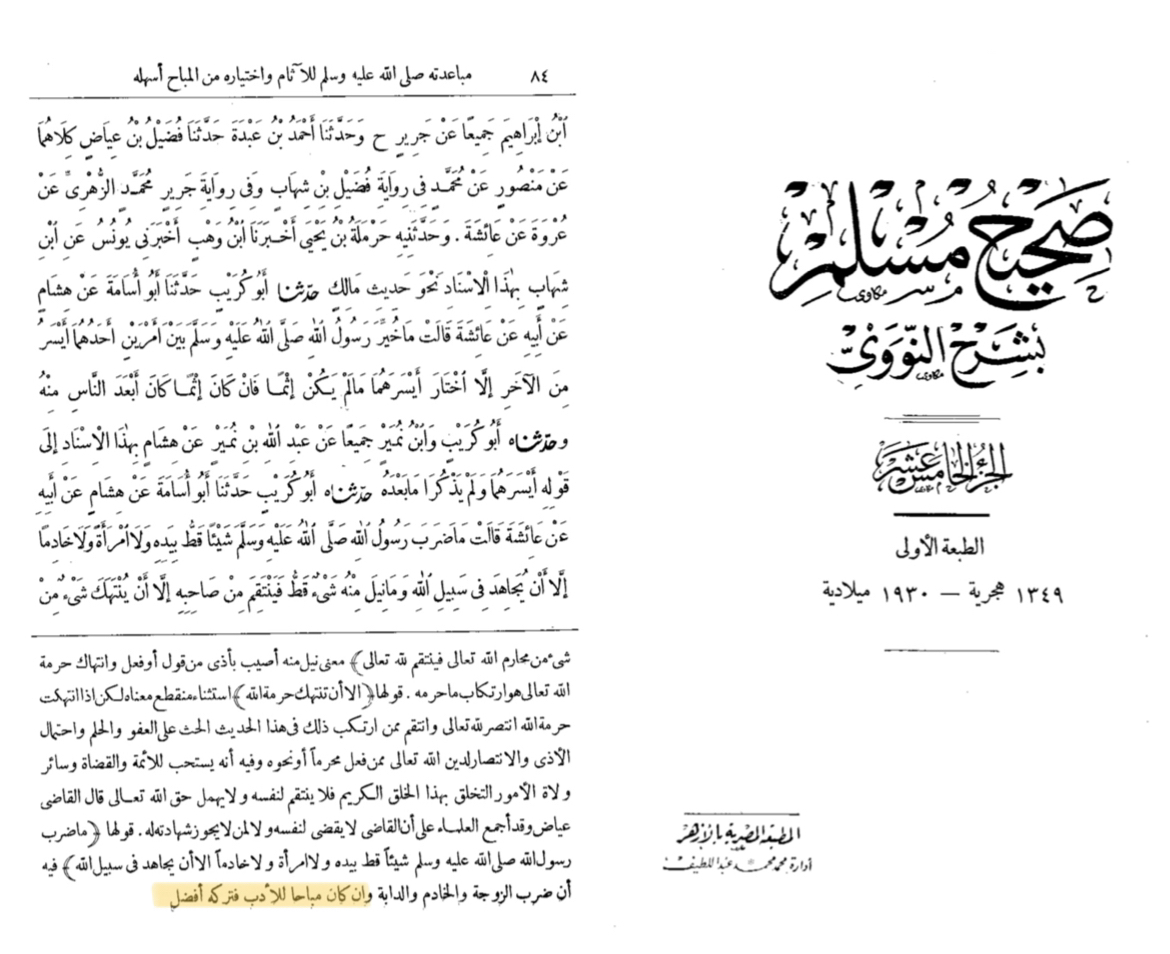 صَحِيحُ مُسْلِمْ
بِشَرْحِ النَّوَوِيِّ
الجزء الخامس عشر
الطبعة الأولى
١٣٤٩ هجرية — ١٩٣٠ ميلادية
المطبعة المصرية بالأزهر
إدارة محمد محمد عبد اللطيف
٨٤ مباعدته صلى الله عليه وسلم للآثام واختياره من المباح أسهله
ابْنُ إِبْرَاهِيمَ جَمِيعًا عَنْ جَرِيرٍ ح وَحَدَّثَنَا أَحْمَدُ بْنُ عَبْدَةَ حَدَّثَنَا فُضَيْلُ بْنُ عِيَاضٍ كِلَاهُمَا
عَنْ مَنْصُورٍ عَنْ مُحَمَّدٍ فِى رِوَايَةِ فُضَيْلِ بْنِ شِهَابٍ وَفِى رِوَايَةِ جَرِيرٍ مُحَمَّدٍ الزُّهْرِىِّ عَنْ
عُرْوَةَ عَنْ عَائِشَةَ . وَحَدَّثَنِيهِ حَرْمَلَةُ بْنُ يَحْيَى أَخْبَرَنَا ابْنُ وَهْبٍ أَخْبَرَنِى يُونُسُ عَنِ ابْنِ
شِهَابٍ بِهٰذَا الْإِسْنَادِ نَحْوَ حَدِيثِ مَالِكٍ حدّثنا أَبُو كُرَيْبٍ حَدَّثَنَا أَبُو أُسَامَةَ عَنْ هِشَامٍ
عَنْ أَبِيهِ عَنْ عَائِشَةَ قَالَتْ مَا خُيِّرَ رَسُولُ اللهِ صَلَّى اللهُ عَلَيْهِ وَسَلَّمَ بَيْنَ أَمْرَيْنِ أَحَدُهُمَا أَيْسَرُ
مِنَ الْآخَرِ إِلَّا اخْتَارَ أَيْسَرَهُمَا مَالَمْ يَكُنْ إِثْمًا فَانْ كَانَ إِثْمًا كَانَ أَبْعَدَ النَّاسِ مِنْهُ
وحدّثناه أَبُو كُرَيْبٍ وَابْنُ نُمَيْرٍ جَمِيعًا عَنْ عَبْدِ اللهِ بْنِ نُمَيْرٍ عَنْ هِشَامٍ بِهٰذَا الْإِسْنَادِ إِلَى
قَوْلِهِ أَيْسَرَهُمَا وَلَمْ يَذْكُرَا مَا بَعْدَهُ حدّثناه أَبُو كُرَيْبٍ حَدَّثَنَا أَبُو أُسَامَةَ عَنْ هِشَامٍ عَنْ أَبِيهِ
عَنْ عَائِشَةَ قَالَتْ مَا ضَرَبَ رَسُولُ اللهِ صَلَّى اللهُ عَلَيْهِ وَسَلَّمَ شَيْئًا قَطُّ بِيَدِهِ وَلَا امْرَأَةً وَلَا خَادِمًا
إِلَّا أَنْ يُجَاهِدَ فِى سَبِيلِ اللهِ وَمَا نِيلَ مِنْهُ شَىْءٌ قَطُّ فَيَنْتَقِمَ مِنْ صَاحِبِهِ إِلَّا أَنْ يُنْتَهَكَ شَىْءٌ مِنْ
شىء من محارم الله تعالى فينتقم لله تعالى) معنى نيل منه أصيب بأذى من قول أو فعل وانتهاك حرمة
الله تعالى هو ارتكاب ما حرمه . قولها (الا أن تنتهك حرمة الله) استثناء منقطع معناه لكن اذا انتهكت
حرمة الله انتصر لله تعالى وانتقم ممن ارتكب ذلك فى هذا الحديث الحث على العفو والحلم واحتمال
الأذى والانتصار لدين الله تعالى ممن فعل محرماً أو نحوه وفيه أنه يستحب للأئمة والقضاة وسائر
ولاة الأمور التخلق بهذا الخلق الكريم فلا ينتقم لنفسه ولا يهمل حق الله تعالى قال القاضى
عياض وقد أجمع العلماء على أن القاضى لا يقضى لنفسه ولا لمن لا يجوز شهادته له . قولها (ما ضرب
رسول الله صلى الله عليه وسلم شيئاً قط بيده ولا امرأة ولا خادماً الا أن يجاهد فى سبيل الله) فيه
أن ضرب الزوجة والخادم والدابة وان كان مباحا للأدب فتركه أفضل